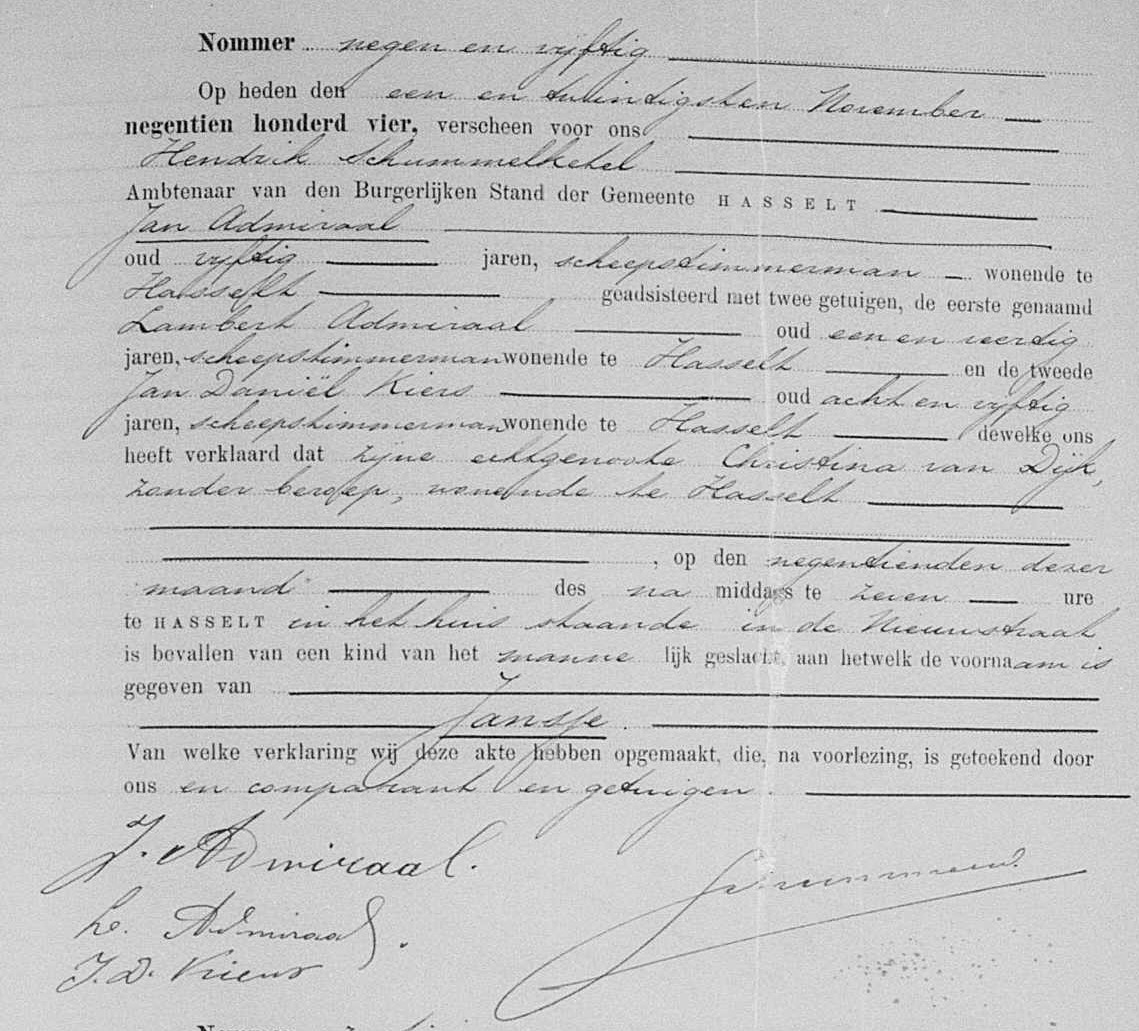 Nommer negen en vyftig
Op heden den een en twintigsten November
negentien honderd vier, verscheen voor ons
Hendrik Schummelketel
Ambtenaar van den Burgerlijken Stand der Gemeente HASSELT
Jan Admiraal
oud vyftig jaren, scheepstimmerman wonende te
Hasselt, geadsisteerd met twee getuigen, de eerste genaamd
Lambert Admiraal oud een en veertig
jaren, scheepstimmerman wonende te Hasselt en de tweede
Jan Daniël Kiers oud acht en vyftig
jaren, scheepstimmerman wonende te Hasselt dewelke ons
heeft verklaard dat zyne echtgenoote Christina van Dijk,
zonder beroep, wonende te Hasselt
, op den negentienden dezer
maand des na middags te zeven ure
te HASSELT in het huis staande in de Nieuwstraat
is bevallen van een kind van het manne lijk geslacht, aan hetwelk de voornaam is
gegeven van
Jansje.
Van welke verklaring wij deze akte hebben opgemaakt, die, na voorlezing, is geteekend door
ons en comparant en getuigen.
J. Admiraal.
L. Admiraal.
J. D. Kiers
Nommer